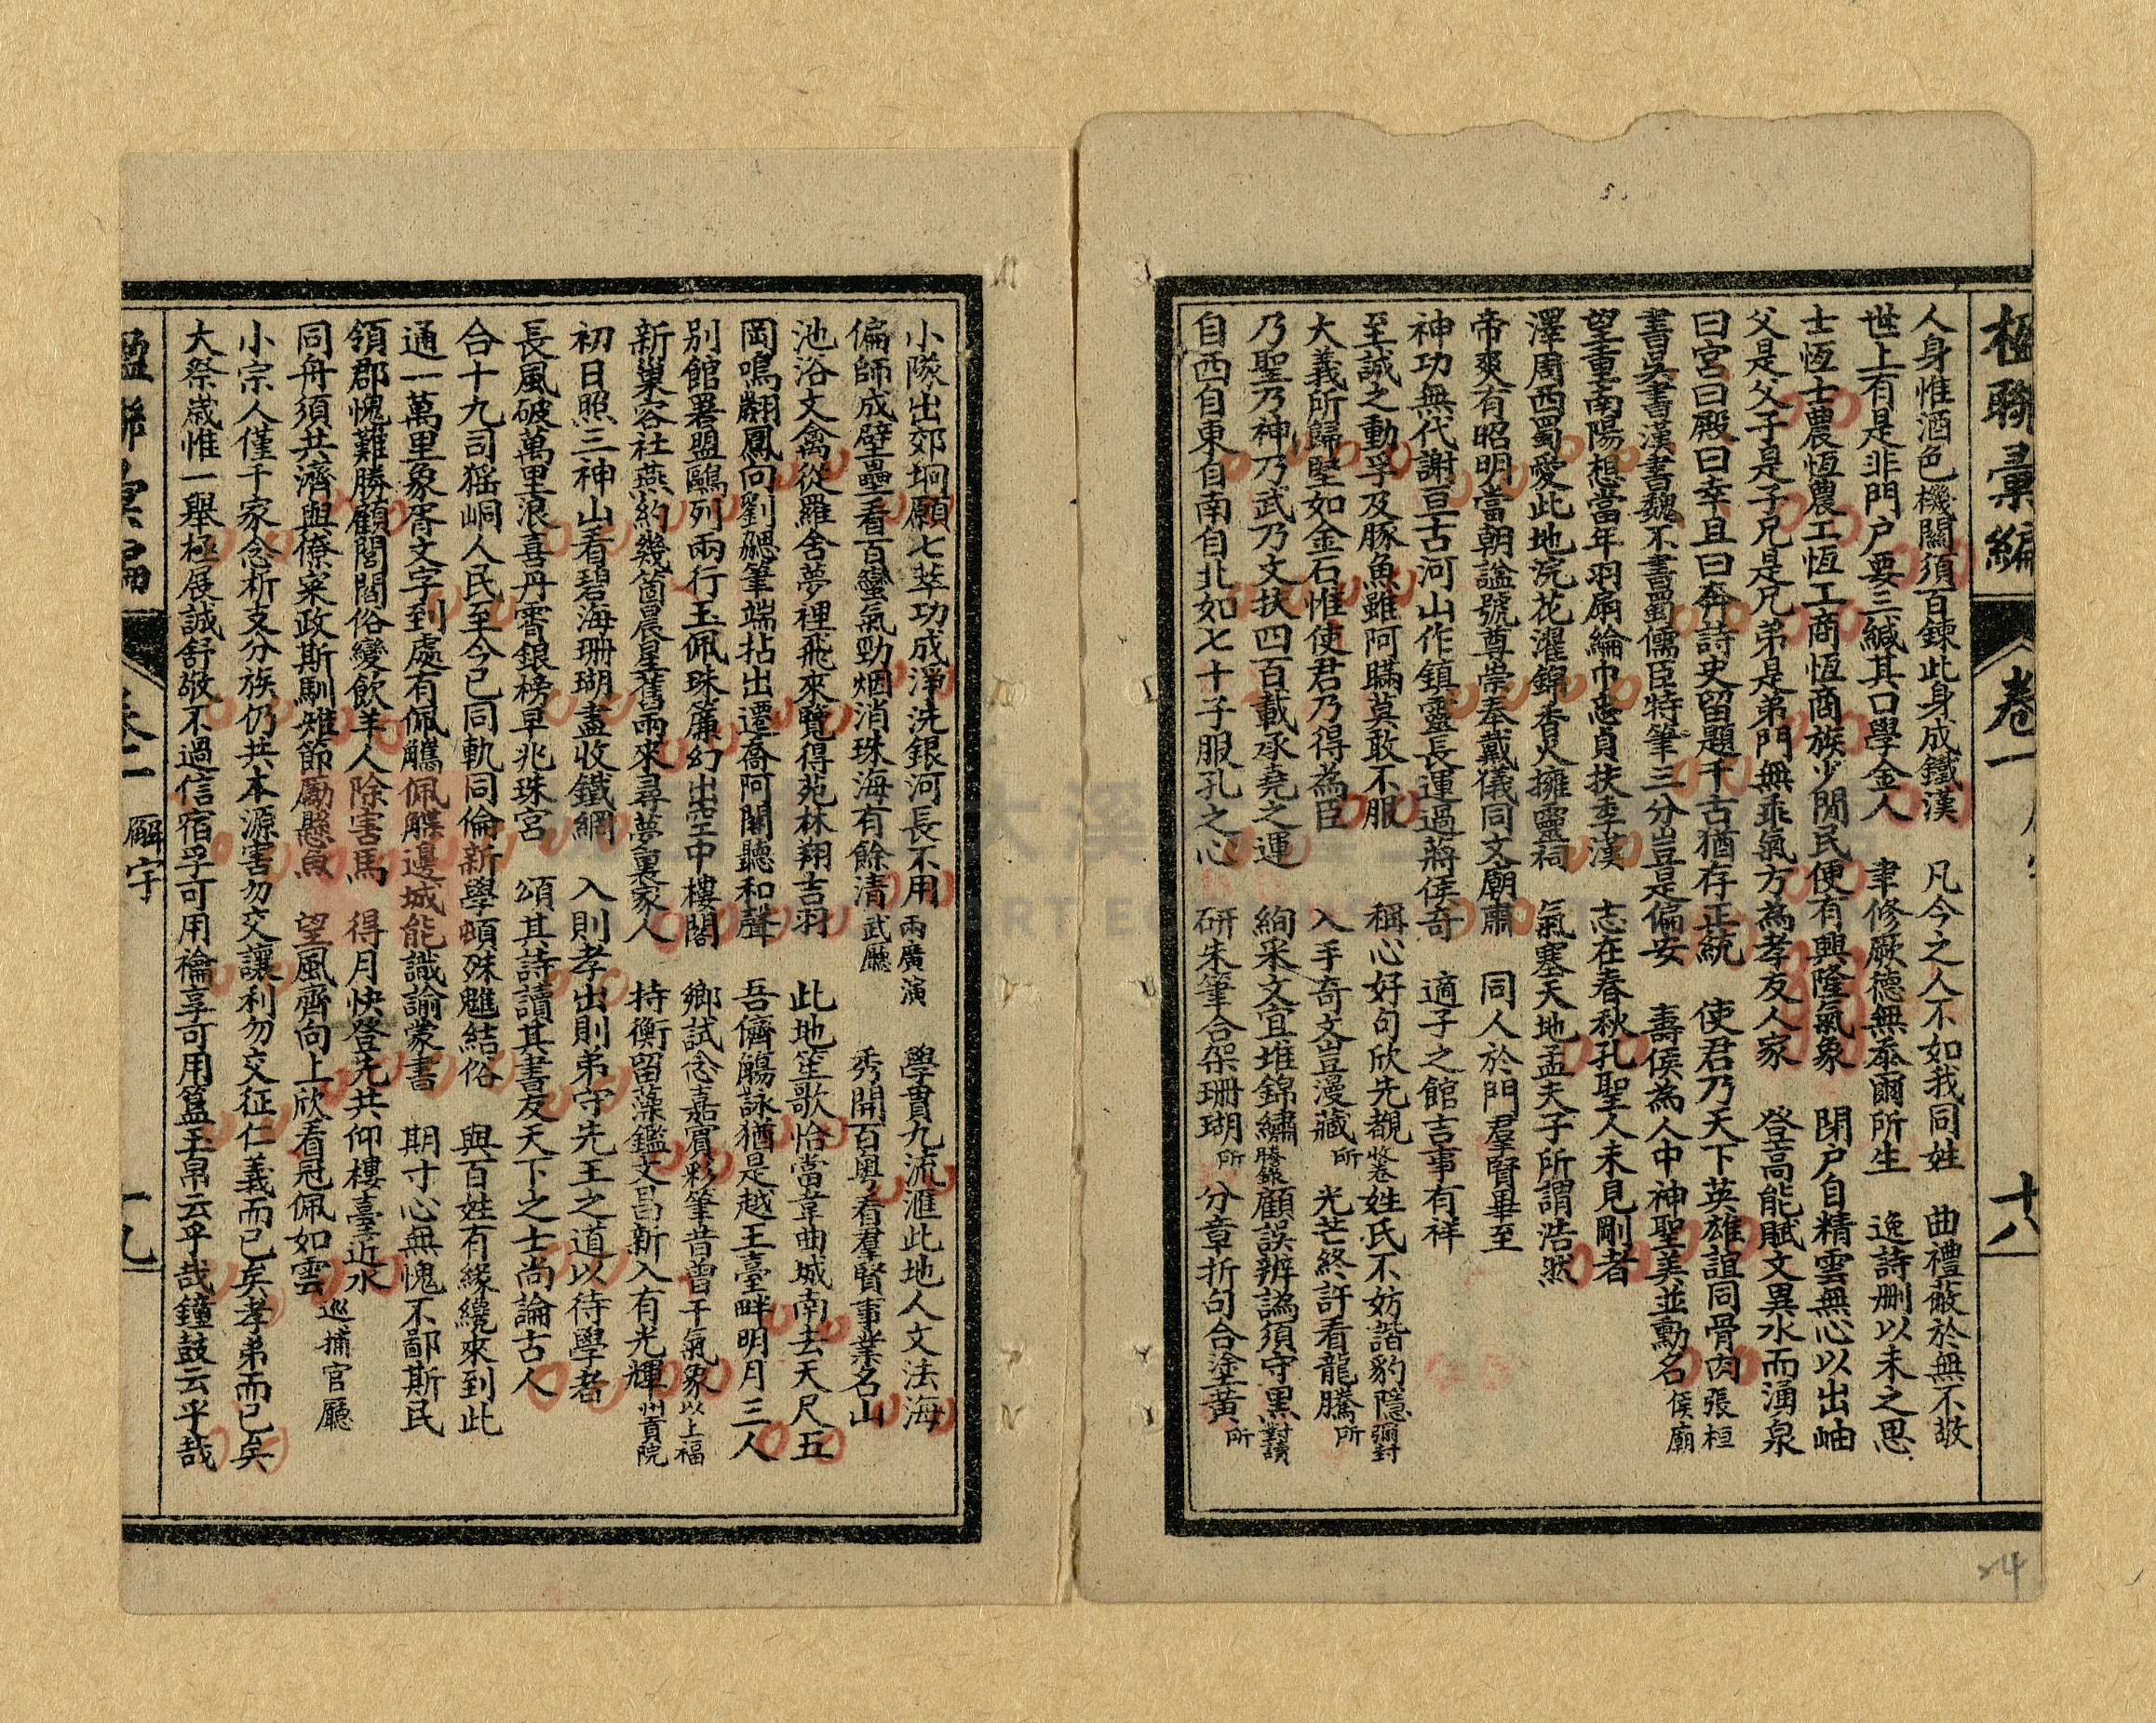 楹聯彙編 卷一 十八
人身惟酒色機關須百鍊此身成鐵漢 凡今之人不如我同姓 曲禮蔽於無不敬
世上有是非門户要三緘其口學金人 聿修厥德無忝爾所生 逸詩刪以未之思
士恆士農恆農工恆工商恆商族少閒民便有興隆氣象 閉户自精雲無心以出岫
父是父子是子兄是兄弟是弟門無乖氣方為孝友人家 登高能賦文異水而湧泉
曰宮曰殿曰幸且曰奔詩史留題千古猶存正統 使君乃天下英雄誼同骨肉 張桓
書吳書漢書魏不書蜀儒臣特筆三分豈是偏安 壽侯為人中神聖美並勳名 侯廟
望重南陽想當年羽扇綸巾忠貞扶季漢 志在春秋孔聖人未見剛者
澤周西蜀愛此地浣花濯錦香火擁靈祠 氣塞天地孟夫子所謂浩然
帝爽有昭明當朝謚號尊崇奉戴儀同文廟肅 同人於門羣賢畢至
神功無代謝亘古河山作鎮靈長運過蔣侯奇 適子之館吉事有祥
至誠之動孚及豚魚雖阿瞞莫敢不服 稱心好句欣先覩 收卷 姓氏不妨諧豹隱 彌封
大義所歸堅如金石惟使君乃得為臣 入手奇文豈漫藏 所 光芒終許看龍騰 所
乃聖乃神乃武乃文扶四百載承堯之運 絢采文宜堆錦繡 謄錄 顧誤辨譌須守黑 對讀
自西自東自南自北如七十子服孔之心 研朱筆合架珊瑚 所 分章折句合塗黃 所
小隊出郊坰願七萃功成淨洗銀河長不用 兩廣演 學貫九流滙此地人文法海
偏師成壁壘看百蠻氣勁烟消珠海有餘清 武廳 秀開百粤看羣賢事業名山
池浴文禽從羅舍夢裡飛來覽得苑林翔吉羽 此地笙歌恰當韋曲城南去天尺五
岡鳴翽鳳向劉勰筆端拈出遷喬阿閣聽和聲 吾儕觴詠猶是越王臺畔明月三人
別館署盟鷗列兩行玉佩珠簾幻出空中樓閣 鄉試念嘉賓彩筆昔曾干氣象 以上福
新巢容社燕約幾箇晨星舊雨來尋夢裏家人 持衡留藻鑑文昌新入有光輝 州貢院
初日照三神山看碧海珊瑚盡收鐵網 入則孝出則弟守先王之道以待學者
長風破萬里浪喜丹霄銀榜早兆珠宮 頌其詩讀其書友天下之士尚論古人
合十九司猺峒人民至今已同軌同倫新學頓殊魋結俗 與百姓有緣纔來到此
通一萬里象胥文字到處有佩觿佩韘邊城能識諭蒙書 期寸心無愧不鄙斯民
領郡愧難勝顧閭閻俗變飲羊人除害馬 得月快登先共仰樓臺近水
同舟須共濟與僚寀政斯馴雉節勵懸魚 望風齊向上欣看冠佩如雲 巡捕官廳
小宗人僅千家念析支分族仍共本源害勿交讓利勿交征仁義而已矣孝弟而已矣
大祭嵗惟一舉極展誠舒敬不過信宿孚可用禴享可用簋玉帛云乎哉鐘鼓云乎哉
楹聯彙編 卷一 廨宇 十九